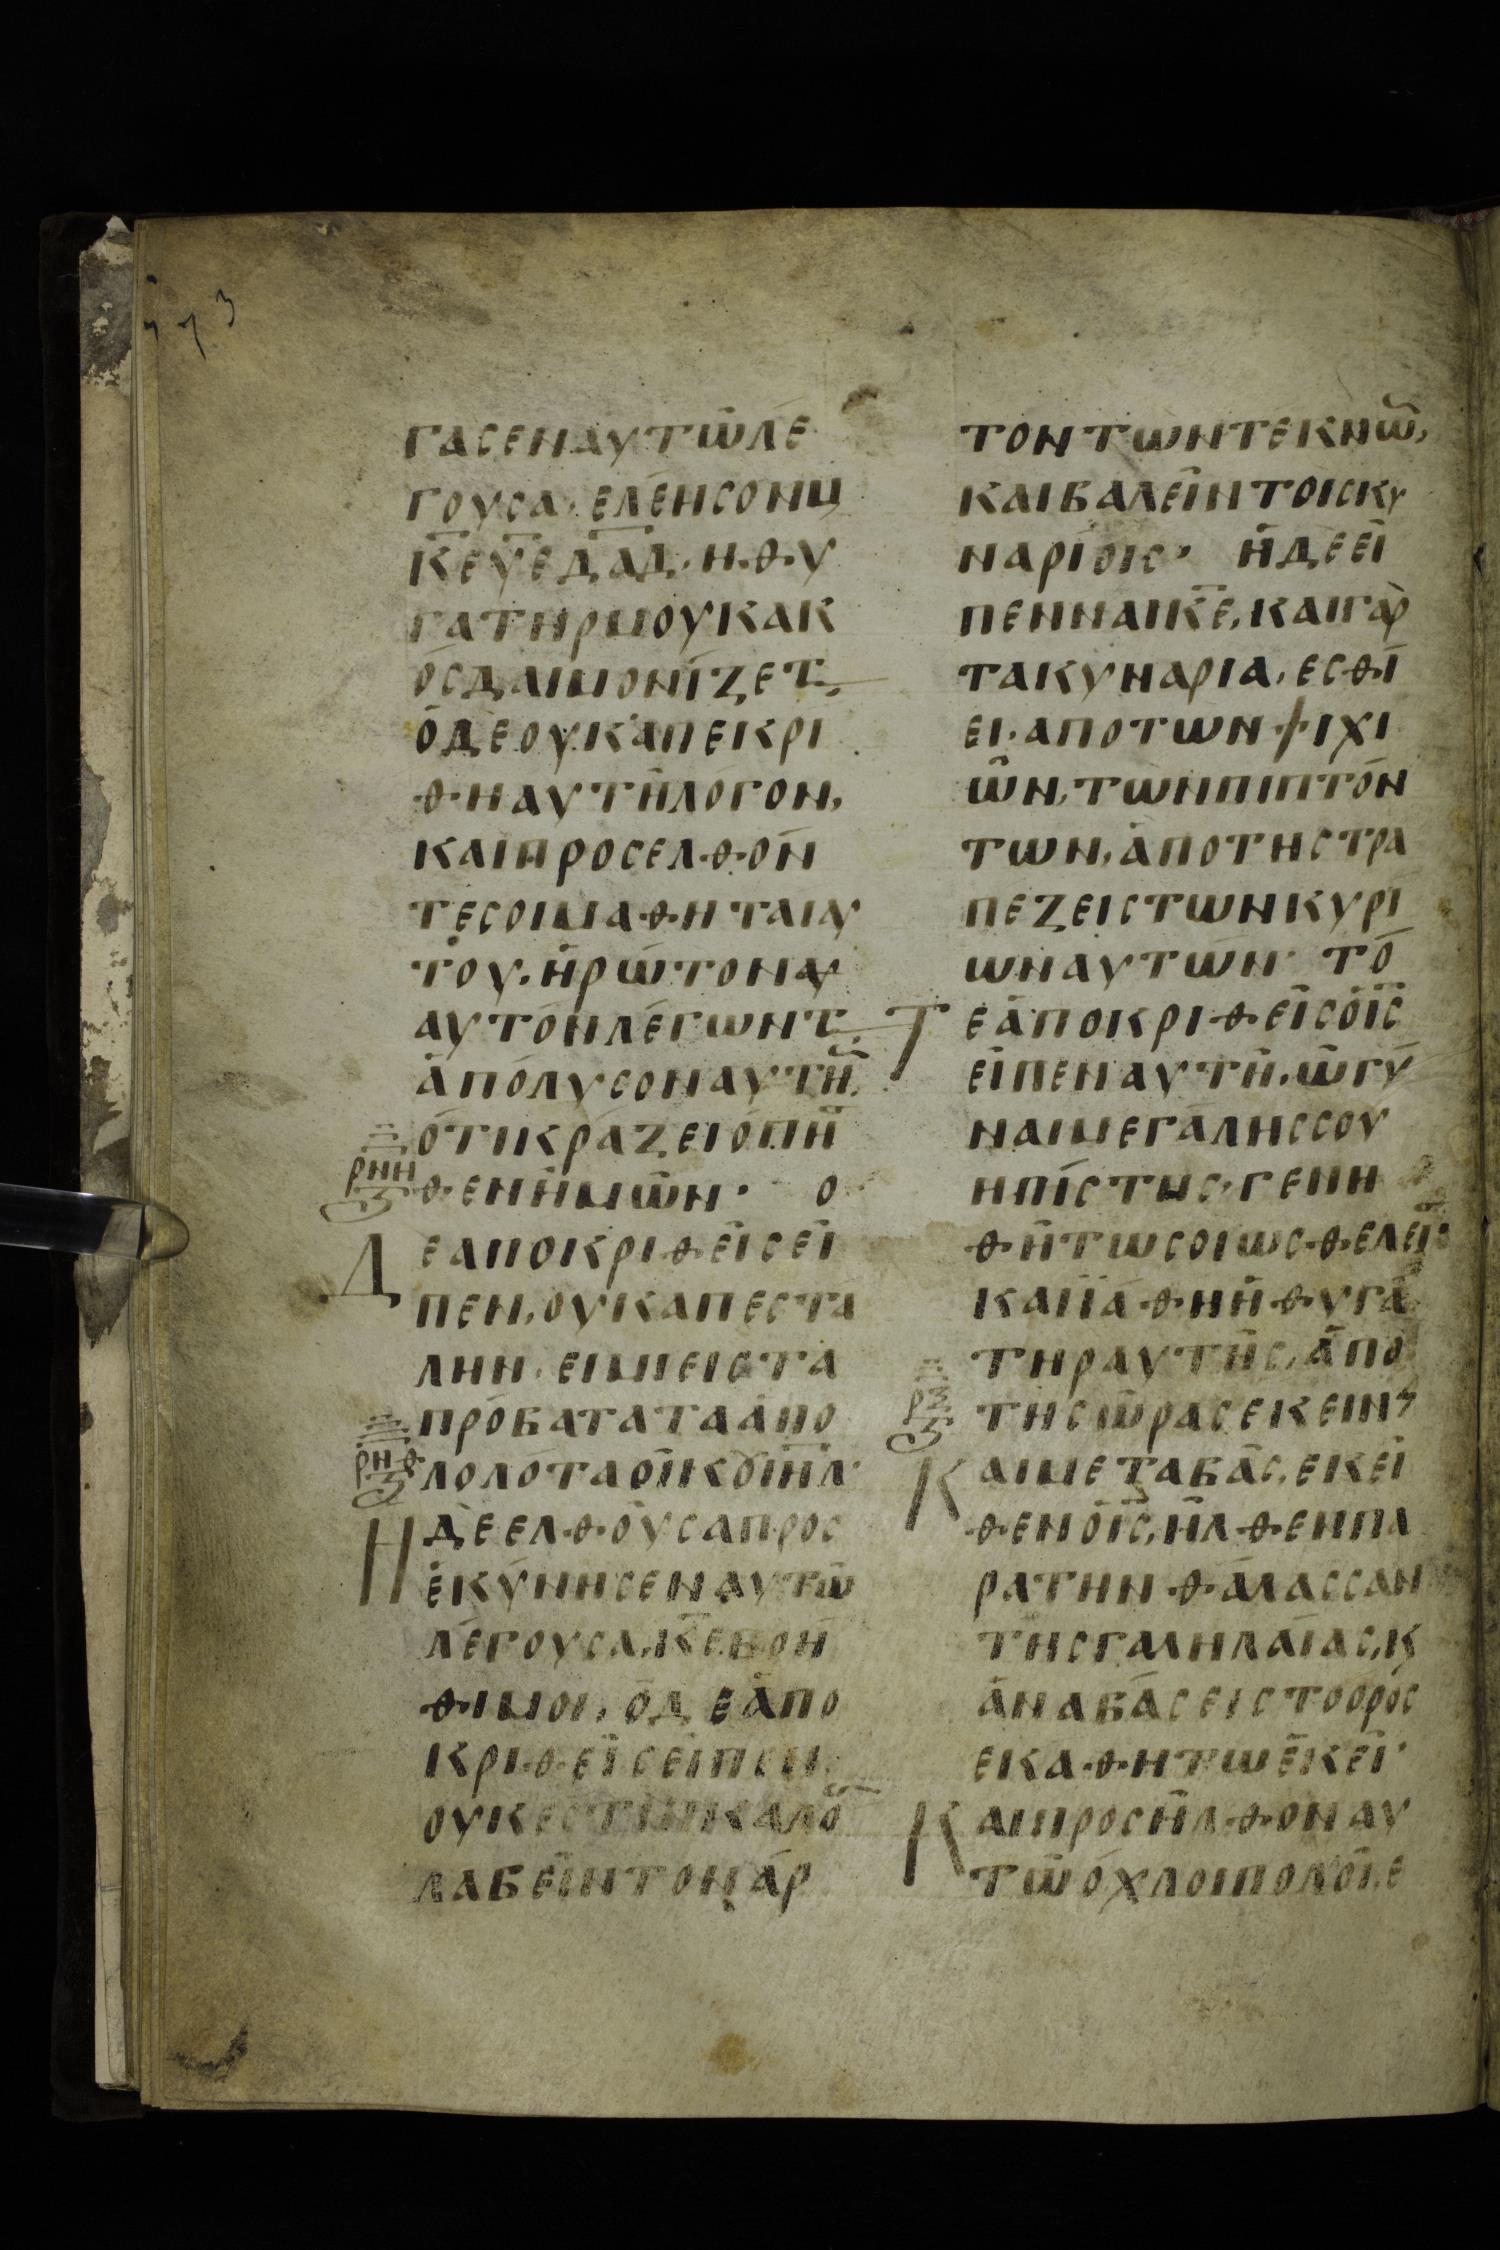 773
ΓΑCΕΝΑΥΤῶΛΕ
ΓΟΥCΑ, ΕΛΕΗCΟΝΜ
Κ̅Ε̅ΥΕΔΑΔ· Η·Θ·Υ
ΓΑΤΗΡΜΟΥΚΑΚ
ΟCΔΑΙΜΟΝΙΖΕΤ,
ΟΔΕΟΥΚΑΠΕΚΡΙ
ΘΗΑΥΤΗΛΟΓΟΝ,
ΚΑΙΠΡΟCΕΛΘΟΝ
ΤΕCΟΙΜΑΘΗΤΑΙΑΥ
ΤΟΥ, ΗΡῶΤΟΝΑΥ
ΑΥΤΟΝΛΕΓΩΝΤ,
ΑΠΟΛΥCΟΝΑΥΤΗ,
ΟΤΙΚΡΑΖΕΙΟΠΗ
ΡΝΗ
ϛ
ΘΕΝΗΜΩΝ· Ο
ΔΕΑΠΟΚΡΙΘΕΙCΕΙ
ΠΕΝ, ΟΥΚΑΠΕCΤΑ
ΛΗΝ, ΕΙΜΗΕΙCΤΑ
ΠΡΟΒΑΤΑΤΑΑΠΟ
ΡΝΘ
ϛ
ΛΟΛΟΤΑΟΙΚȣΙΗΛ·
ΗΔΕΕΛΘΟΥCΑΠΡΟC
ΕΚΥΝΗCΕΝΑΥΤΩ
ΛΕΓΟΥCΑ, Κ̅Ε̅ΒΟΗ
ΘΙΜΟΙ, ΟΔΕΑΠΟ
ΚΡΙΘΕΙCΕΙΠΕΝ,
ΟΥΚΕCΤΙΝΚΑΛΟ
ΛΑΒΕΙΝΤΟΝΑΡ
ΤΟΝΤΩΝΤΕΚΝΩ,
ΚΑΙΒΑΛΕΙΝΤΟΙCΚΥ
ΝΑΡΙΟΙC· ΗΔΕΕΙ
ΠΕΝΝΑΙΚ̅Ε̅, ΚΑΙΓΑΡ
ΤΑΚΥΝΑΡΙΑ, ΕCΘΙ
ΕΙ· ΑΠΟΤΩΝΨΙΧΙ
ΩΝ, ΤΩΝΠΙΠΤΟΝ
ΤΩΝ, ΑΠΟΤΗCΤΡΑ
ΠΕΖΕΙCΤΩΝΚΥΡΙ
ΩΝΑΥΤΩΝ· ΤΟ
ΤΕΑΠΟΚΡΙΘΕΙCΟΙ̅C̅
ΕΙΠΕΝΑΥΤΗ, ΩΓΥ
ΝΑΙΜΕΓΑΛΗCCΟΥ
ΗΠΙCΤΗC· ΓΕΝΗ
ΘΗΤΩCΟΙΩCΘΕΛΕΙ·
ΚΑΙΙΑΘΗΗΘΥΓΑ
ΤΗΡΑΥΤΗC, ΑΠΟ
ΤΗCΩΡΑCΕΚΕΙΝ
ΚΑΙΜΕΤΑΒΑC, ΕΚΕΙ
ΘΕΝΟΙ̅C̅, ΗΛΘΕΝΠΑ
ΡΑΤΗΝΘΑΛΑCCΑΝ
ΤΗCΓΑΛΗΛΑΙΑC, Κ
ΑΝΑΒΑCΕΙCΤΟΟΡΟC
ΕΚΑΘΗΤΩΕΚΕΙ·
ΚΑΙΠΡΟCΗΛΘΟΝΑΥ
ΤΩΟΧΛΟΙΠΟΛΟΙ, Ε